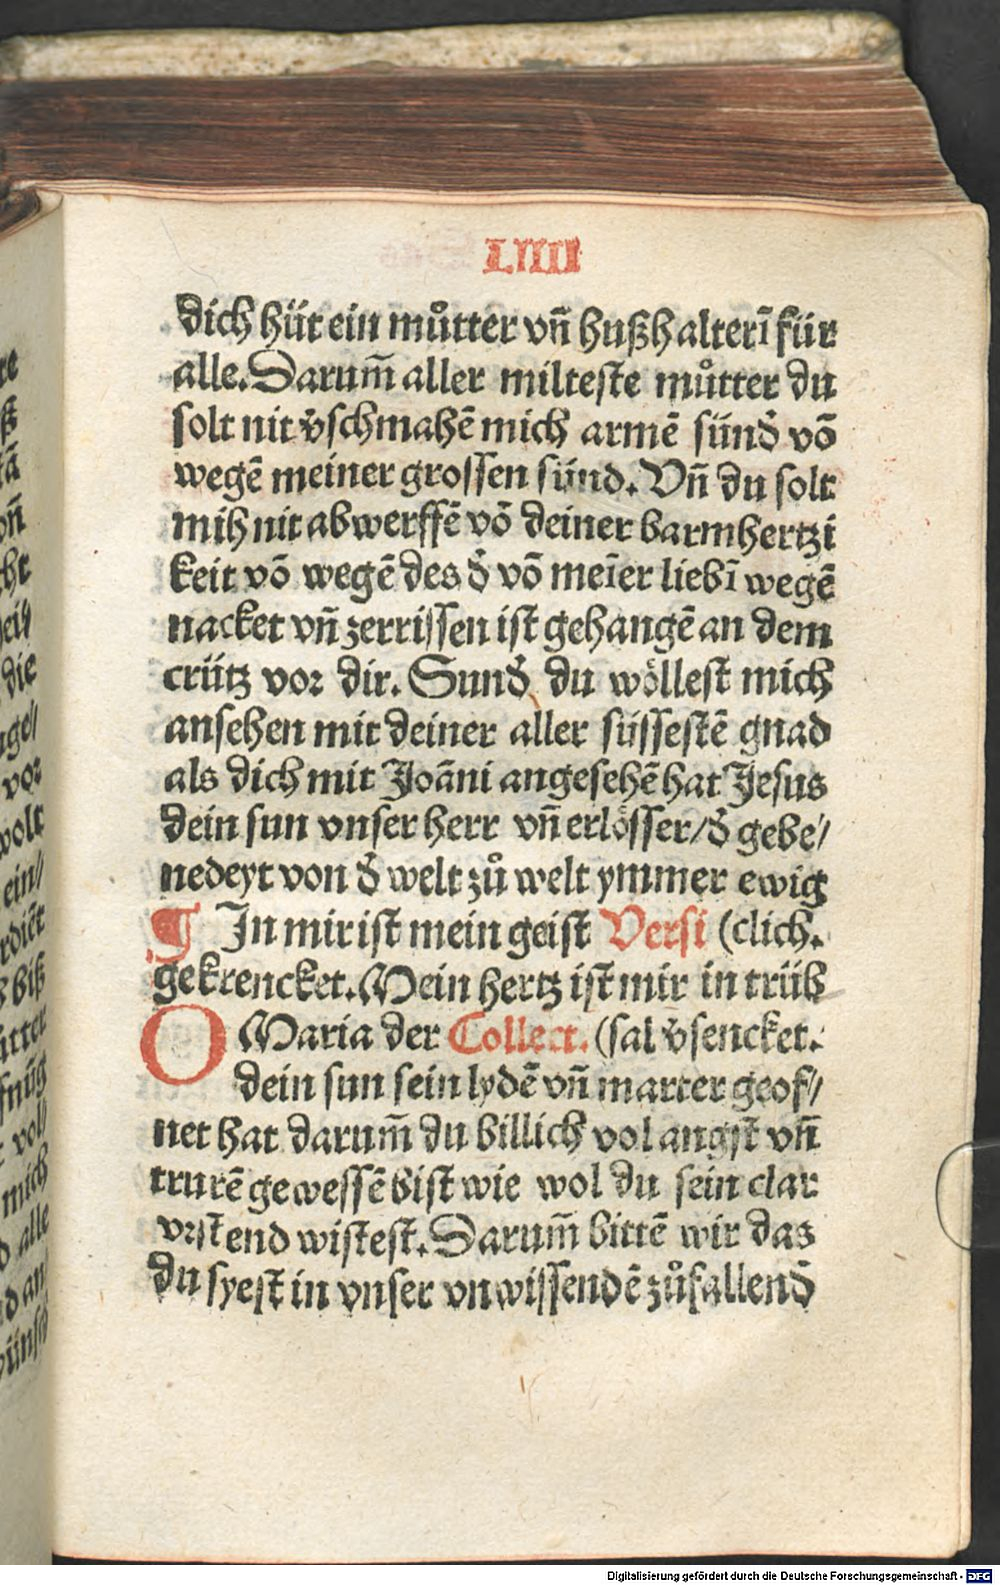 LIIII
dich hüt ein můtter vñ hußhalterī für
alle. Darum̄ aller milteste můtter du
solt nit v̄schmahē mich armē sünd̄ vō
wegē meiner grossen sünd. Vñ du solt
mih nit abwerffē vō deiner barmhertzi
keit vō wegē des d̄ vō meīer liebī wegē
nacket vñ zerrissen ist gehangē an dem
crütz vor dir. Sund̄ du wöllest mich
ansehen mit deiner aller süssestē gnad
als dich mit Joāni angesehē hat Jesus
dein sun vnser herr vñ erlösser/ d̄ gebe//
nedeyt von d̄ welt zů welt ymmer ewig
¶ In mir ist mein geist Versi (clich.
gekrencket. Mein hertz ist mir in trüb
O Maria der Collect. (sal v̄sencket.
dein sun sein lydē vñ marter geof//
net hat darum̄ du billich vol angst vñ
trurē gewessē bist wie wol du sein clar
vrstend wistest. Darum̄ bittē wir das
du syest in vnser vnwissendē zůfallend̄
Digitalisierung gefördert durch die Deutsche Forschungsgemeinschaft - DFG